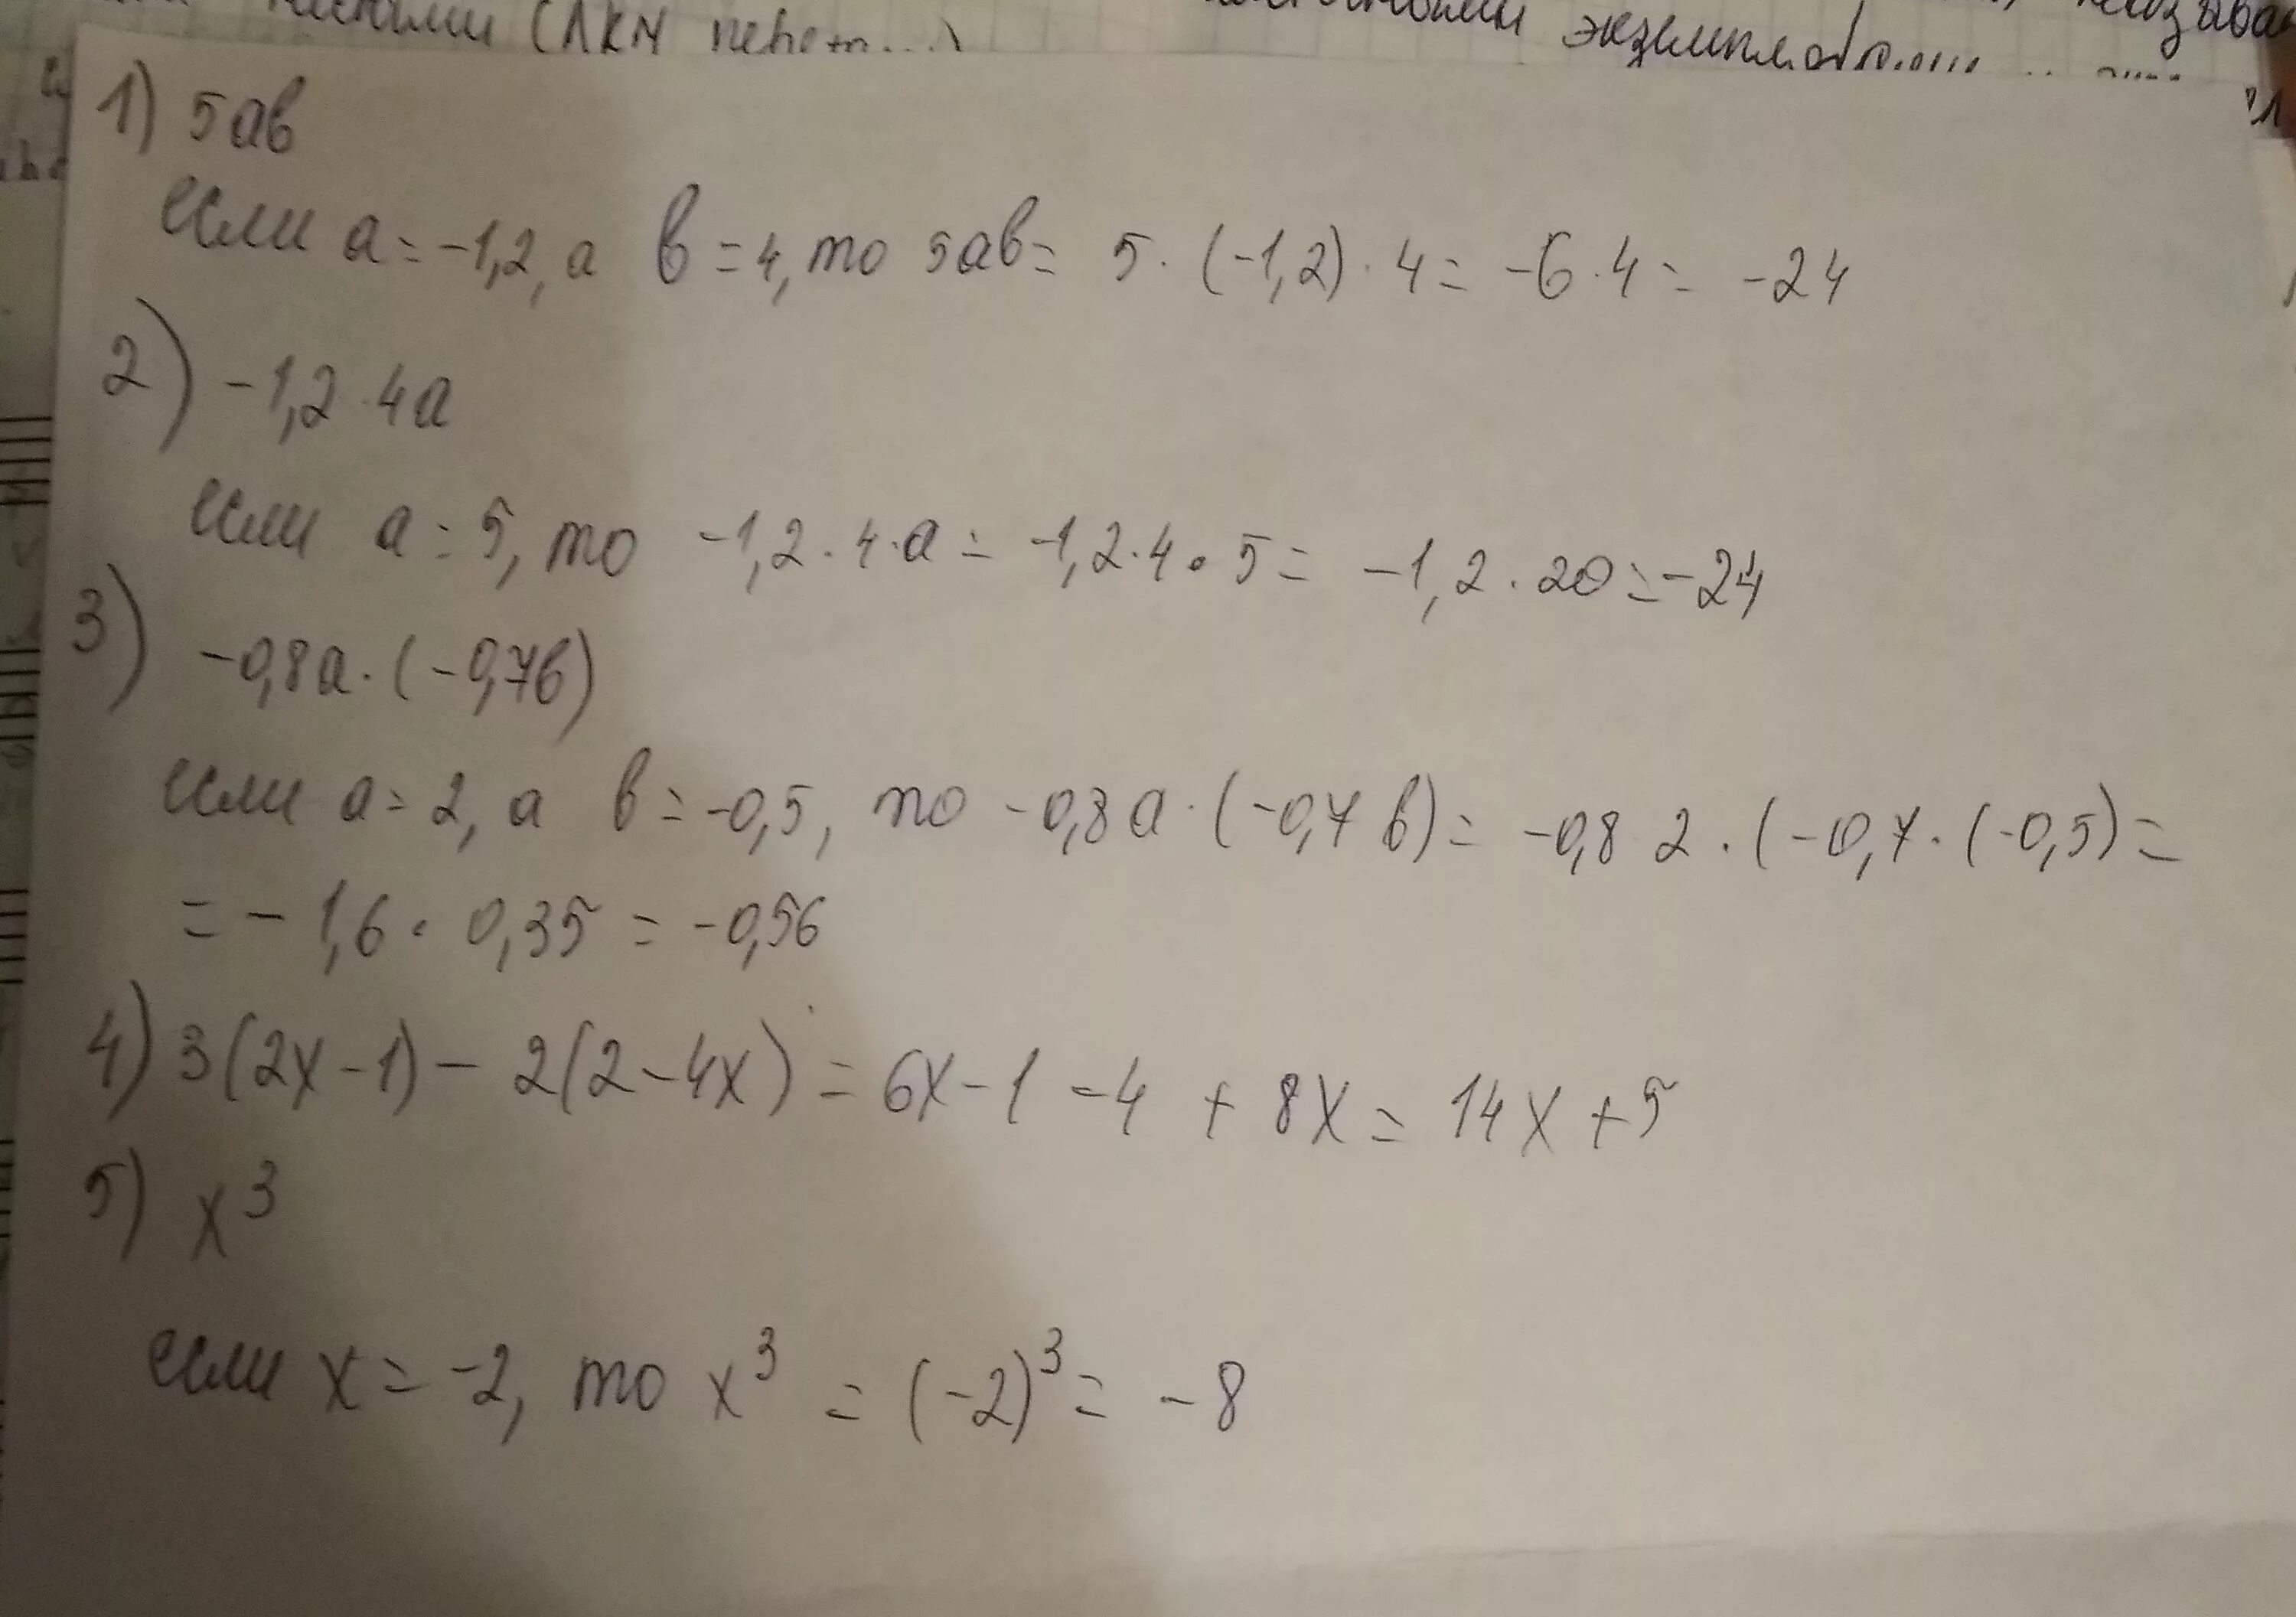 (ЛКN
1) 5ав
если а = -1,2, а в = 4, то 5ав = 5 · (-1,2) · 4 = -6 · 4 = -24
2) -1,2 · 4а
если а = 5, то -1,2 · 4 · а = -1,2 · 4 · 5 = -1,2 · 20 = -24
3) -0,8а · (-0,7в)
если а = 2, а в = -0,5, то -0,8а · (-0,7в) = -0,8 2 · (-0,7 · (-0,5) =
= -1,6 · 0,35 = -0,56
4) 3(2x-1) - 2(2-4x) = 6x-1 -4 + 8x = 14x + 5
5) x³
если x = -2, то x³ = (-2)³ = -8